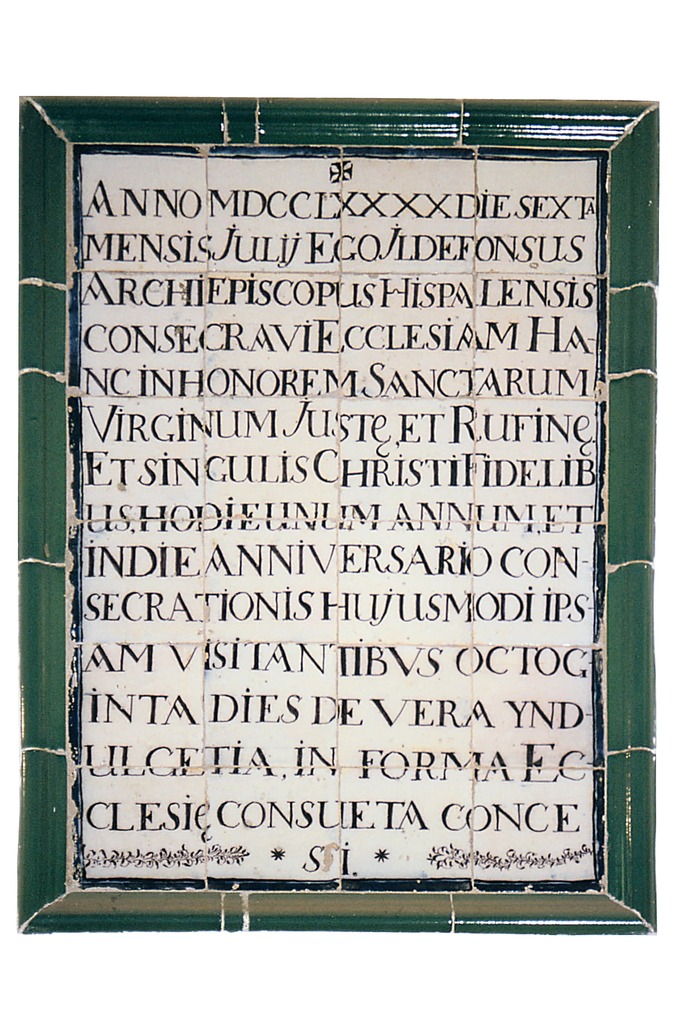 ✠
ANNO MDCCLXXXXDIE SEXTA
MENSIS JULIJ EGO JLDEFONSUS
ARCHIEPISCOPUS HISPALENSIS
CONSECRAVI ECCLESIAM HA-
NC IN HONOREM SANCTARUM
VIRGINUM JUSTĘ, ET RUFINĘ.
ET SINGULIS CHRISTI FIDELIB
US, HODIE UNUM ANNUM, ET
IN DIE ANNIVERSARIO CON-
SECRATIONIS HUJUSMODI IPS-
AM VISITANTIBVS OCTOG-
INTA DIES DE VERA YND-
ULGETIA, IN FORMA EC-
CLESIĘ CONSUETA CONCE
* SSI. *